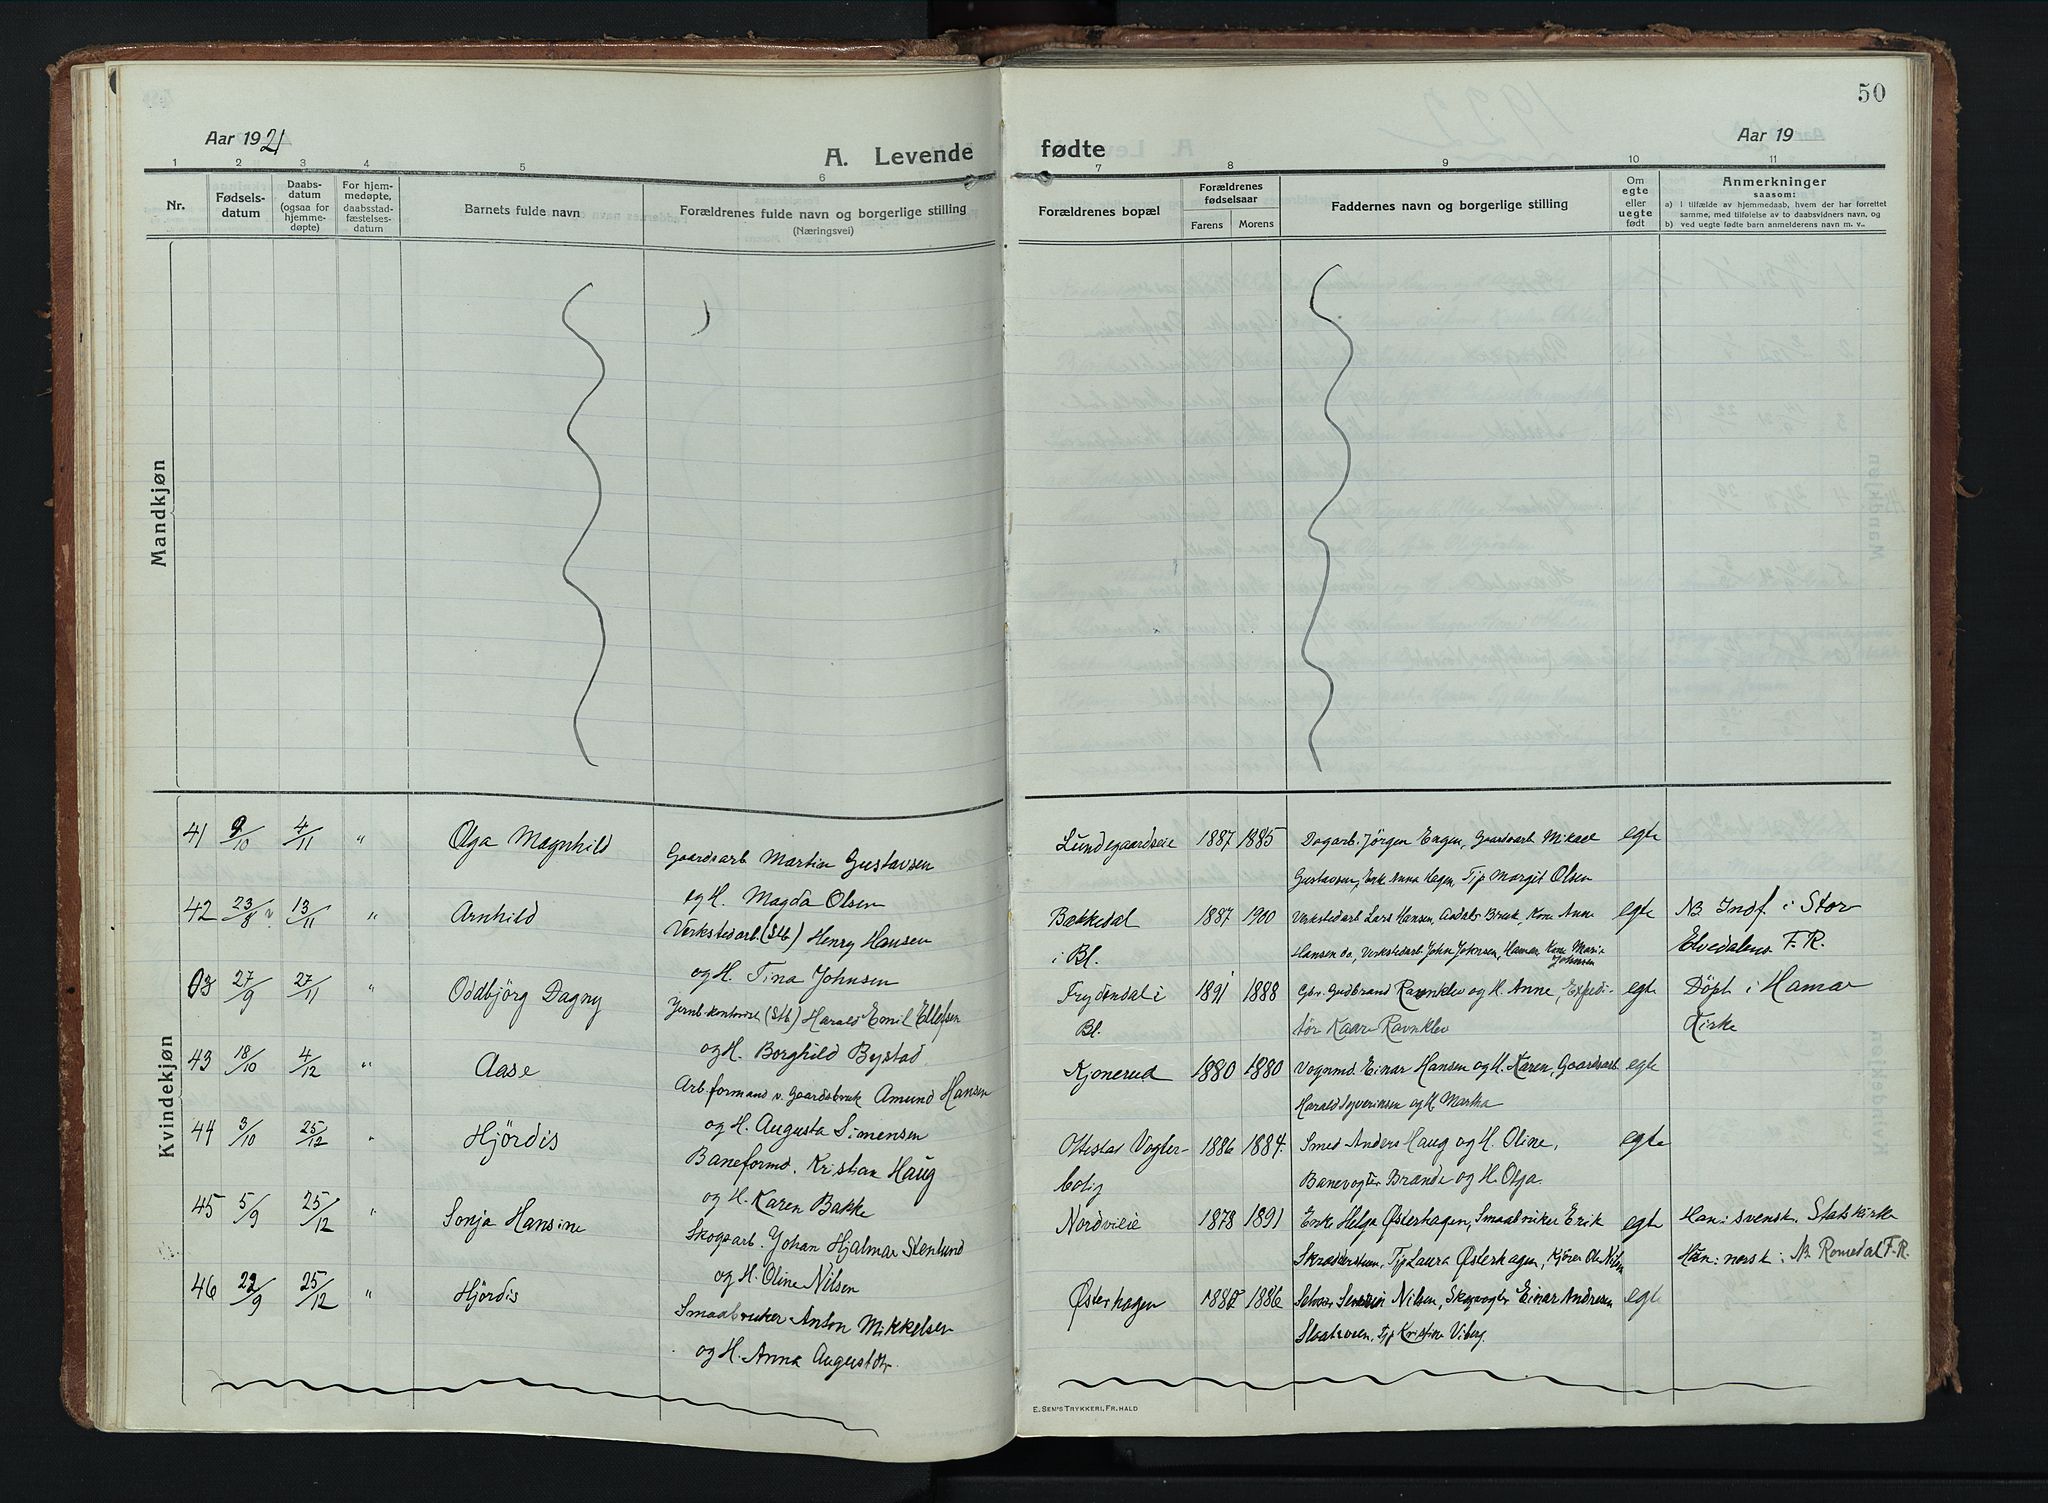 50
Aar 1921
A. Levende
fødte
Aar 19
1 2 3 4 5 6 7 8 9 10 11
Nr.
Fødsels-
datum
Daabs-
datum
(ogsaa for
hjemme-
døpte)
For hjem-
medøpte,
daabsstad-
fæstelses-
datum
Barnets fulde navn
Forældrenes fulde navn og borgerlige stilling
(Næringsvei)
Forældrenes bopæl
Forældrenes
fødselsaar
Farens Morens
Faddernes navn og borgerlige stilling
Om
egte
eller
uegte
født
Anmerkninger
saasom:
a) i tilfælde av hjemmedaab, hvem der har forrettet
samme, med tilføielse av to daabsvidners navn, og
b) ved uegte fødte barn anmelderens navn m. v..
Mandkjøn
Kvindekjøn
41 9/10 4/11 " Olga Magnhild
Gaardsarb Martin Gustavsen
og H. Magda Olsen
Lundegaardseie 1887 1885 Dagarb. Jörgen Engen, Gaardsarb Mikael egte
Gustavsen, Enk Anna Hagen Tjp Margit Olsen
42 23/8 13/11 " Arnhild
Verkstedarb (Stb) Henry Hansen
og H. Tina Johnsen
Bækkedal 1887 1900 Verkstedarb Lars Hansen, Aadals Bruk, Kone Anne egte NB Indf. i Stor
i Bl. Hansen do, Verkstedarb John Johnsen, Hamar Kone Marie
Johnsen
Elvedalens F. R.
27/9 27/11 " Oddbjörg Dagny
Jernb.kontorist (Stb) Harald Emil Ellefsen
og H. Borghild Bystad
Frydendal i 1891 1888 Gbr. Gudbrand Ravnklev og H. Anne, Expedi- egte Döpt i Hamar
Bl. tör Kaare Ravnklev Kirke
43 18/10 4/12 " Aase
Arb formand v. Gaardsbruk Amund Hansen
og H. Augusta Simensen
Kjonerud 1880 1880 Vognmd. Einar Hansen og H. Karen, Gaardsarb egte
Harald Syverinsen og H. Martha
44 3/10 25/12 " Hjördis
Baneformd. Kristian Haug
og H. Karen Bakke
Ottestad Vogter- 1886 1884. Smed Anders Haug og H. Oline, egte
bolig Banevogter Brænde og H. Olga.
45 5/9 25/12 " Sonja Hansine
Skogsarb. Johan Hjalmar Stenlund
og H. Oline Nilsen
Nordvieie 1878 1891 Enke Helga Østerhagen, Smaabruker Erik egte Han: svensk. Statskirke
Skræderstuen, Tjp Laura Østerhagen, Kjörer Ole Nilsen Hun: norsk: NB Romedal F.R.
46 22/9 25/12 " Hjördis
Smaabruker Anton Mikkelsen
og H. Anna Augustdtr.
Østerhagen 1886 Nilsen, Skogvogter Einar Andresen egte
Tjp Kristine Viberg
E. SEM'S TRYKKERI, FR.HALD